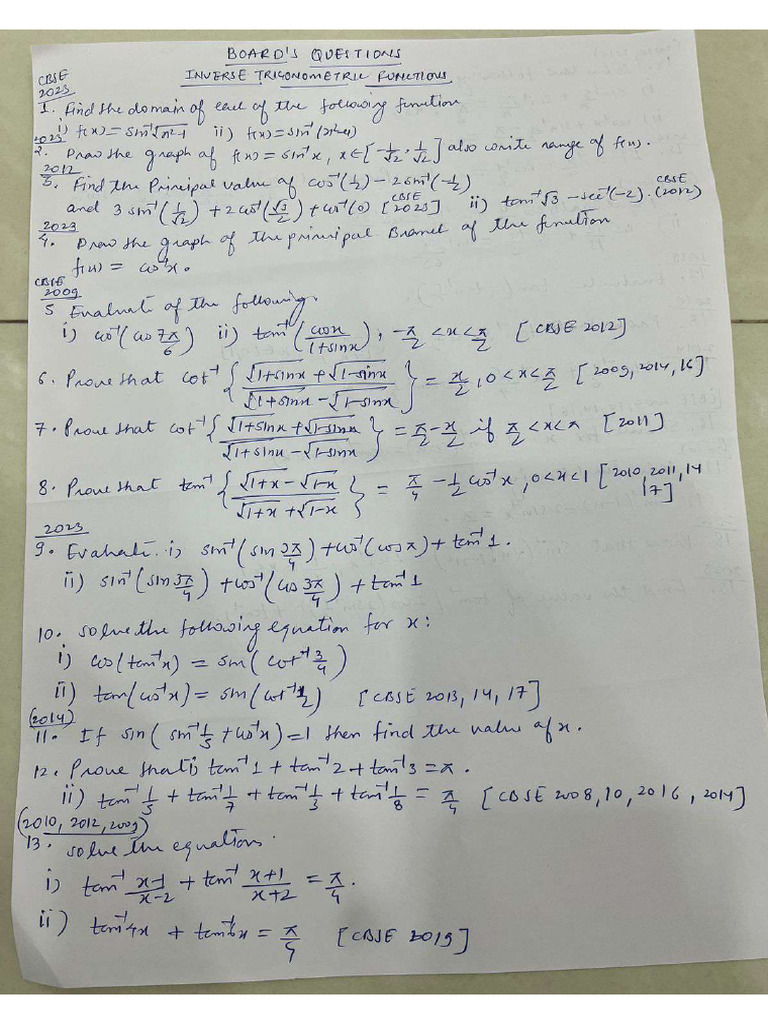 BOARD'S QUESTIONS
INVERSE TRIGONOMETRIC FUNCTIONS
CBSE
2023
1. Find the domain of each of the following function
i) f(x) = sin⁻¹√(x²-1) ii) f(x) = sin⁻¹(x²-4)
2023
2. Draw the graph of f(x) = sin⁻¹x, x∈[-1/√2, 1/√2] also write range of f(x).
2012
3. Find the Principal value of cos⁻¹(1/2) - 2sin⁻¹(-1/2)
and 3 sin⁻¹(1/√2) + 2cos⁻¹(√3/2) + cos⁻¹(0) [CBSE 2023] ii) tan⁻¹√3 - sec⁻¹(-2). (CBSE 2012)
2023
4. Draw the graph of the principal Branch of the function
f(x) = cos⁻¹x.
CBSE
2009
5 Evaluate of the following.
i) cos⁻¹(cos 7π/6) ii) tan⁻¹(cosx/(1+sinx)), -π/2 < x < π/2 [CBSE 2012]
6. Prove that cot⁻¹{(√(1+sinx) + √(1-sinx))/(√(1+sinx) - √(1-sinx))} = x/2, 0 < x < π/2 [2009, 2014, 16]
7. Prove that cot⁻¹{(√(1+sinx) + √(1-sinx))/(√(1+sinx) - √(1-sinx))} = π/2 - x/2 if π/2 < x < π [2011]
8. Prove that tan⁻¹{(√(1+x) - √(1-x))/(√(1+x) + √(1-x))} = π/4 - 1/2 cos⁻¹x, 0 < x < 1 [2010, 2011, 14, 17]
2023
9. Evaluate i) sin⁻¹(sin 3π/4) + cos⁻¹(cosπ) + tan⁻¹1.
ii) sin⁻¹(sin 3π/4) + cos⁻¹(cos 3π/4) + tan⁻¹1
10. Solve the following equation for x:
i) cos(tan⁻¹x) = sin(cot⁻¹ 3/4)
ii) tan(cos⁻¹x) = sin(cot⁻¹ 1/2) [CBSE 2013, 14, 17]
(2014)
11. If sin(sin⁻¹ 1/5 + cos⁻¹x) = 1 then find the value of x.
12. Prove that i) tan⁻¹1 + tan⁻¹2 + tan⁻¹3 = π.
ii) tan⁻¹ 1/5 + tan⁻¹ 1/7 + tan⁻¹ 1/3 + tan⁻¹ 1/8 = π/4 [CBSE 2008, 10, 2016, 2014]
(2010, 2012, 2009)
13. Solve the equation.
i) tan⁻¹ (x-1)/(x-2) + tan⁻¹ (x+1)/(x+2) = π/4.
ii) tan⁻¹4x + tan⁻¹6x = π/4 [CBSE 2019]